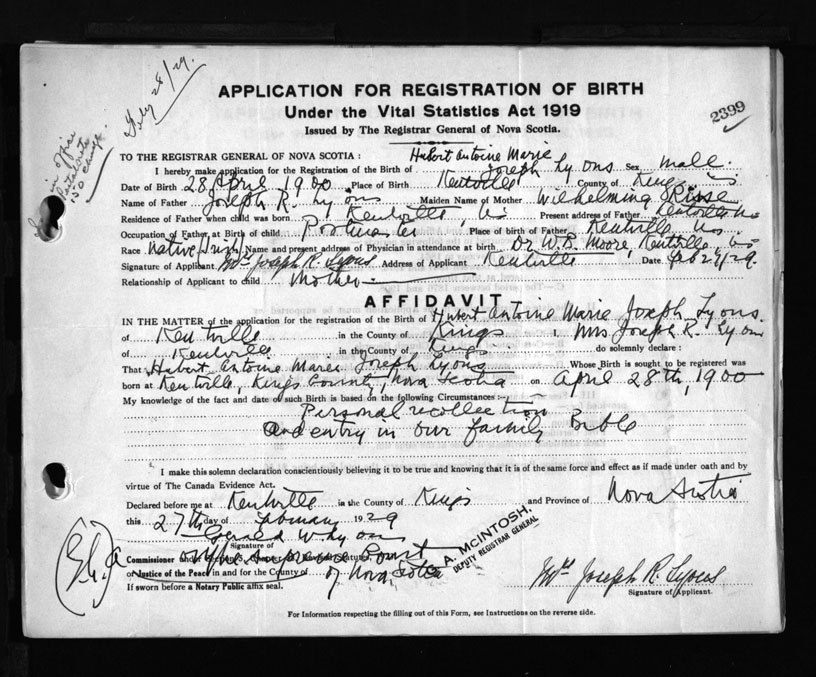 Feby 28/29.
APPLICATION FOR REGISTRATION OF BIRTH
Under the Vital Statistics Act 1919
2399
Issued by The Registrar General of Nova Scotia.
in office
150 charge
TO THE REGISTRAR GENERAL OF NOVA SCOTIA: Hubert Antoine Marie
I hereby make application for the Registration of the Birth of Joseph Lyons Sex male.
Date of Birth 28 April 1900 Place of Birth Kentville County of Kings NS
Name of Father Joseph R. Lyons Maiden Name of Mother Wilhelmina
Residence of Father when child was born Kentville, NS Present address of Father, Kentville NS
Occupation of Father at Birth of child Postmaster Place of birth of Father Kentville, NS.
Race Native (Irish) Name and present address of Physician in attendance at birth Dr W.B. Moore, Kentville, NS
Signature of Applicant Mrs Joseph R. Lyons Address of Applicant Kentville Date Feb 27/29.
Relationship of Applicant to child Mother
AFFIDAVIT
IN THE MATTER of the application for the registration of the Birth of Hubert Antoine Marie Joseph Lyons.
of Kentville in the County of Kings I, Mrs Joseph R. Lyons
of Kentville in the County of Kings do solemnly declare:
That Hubert Antoine Marie Joseph Lyons Whose Birth is sought to be registered was
born at Kentville, Kings County, Nova Scotia on April 28th, 1900
My knowledge of the fact and date of such Birth is based on the following Circumstances:
Personal recollection
and entry in our family Bible
I make this solemn declaration conscientiously believing it to be true and knowing that it is of the same force and effect as if made under oath and by
virtue of The Canada Evidence Act.
Declared before me at Kentville in the County of Kings and Province of Nova Scotia
this 27th day of February 1929
Signature of
A. McINTOSH.
DEPUTY REGISTRAR GENERAL
Commissioner
of the Supreme Court
or Justice of the Peace in and for the County of of Nova Scotia
Mrs Joseph R. Lyons
Signature of Applicant.
If sworn before a Notary Public affix seal.
For Information respecting the filling out of this Form, see Instructions on the reverse side.